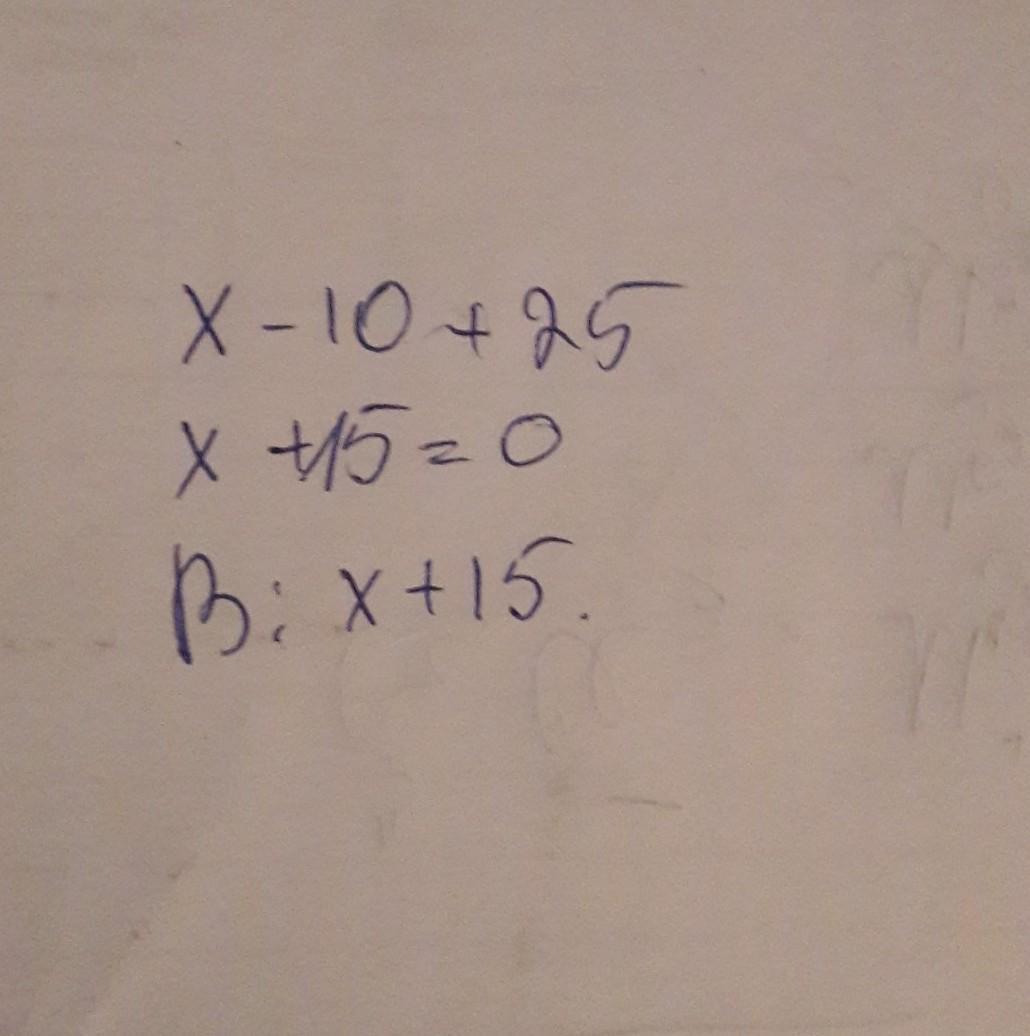 x - 10 + 25
x + 15 = 0
В: x + 15.